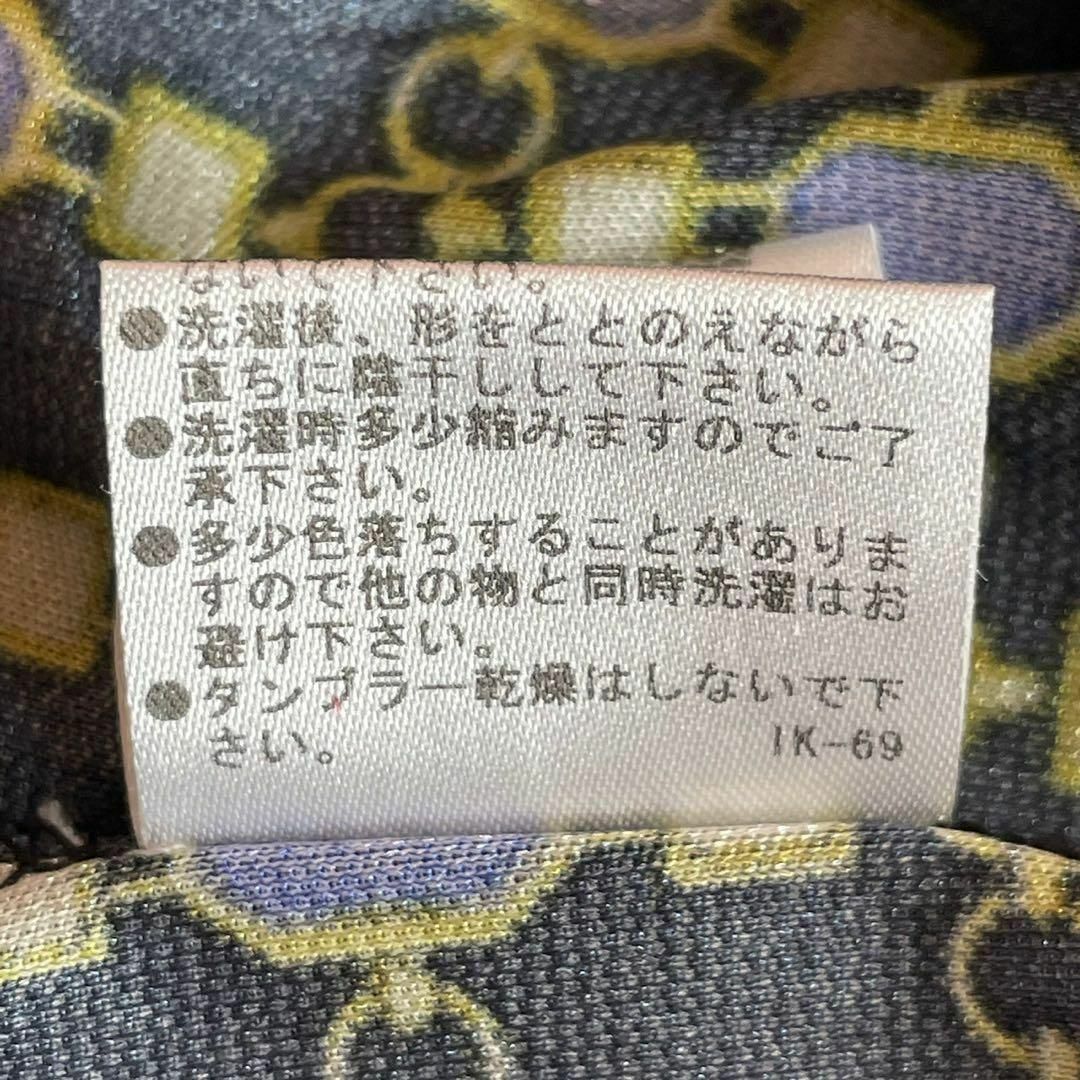 ないで下さい。
●洗濯後、形をととのえながら
直ちに陰干しして下さい。
●洗濯時多少縮みますのでご了
承下さい。
●多少色落ちすることがありま
すので他の物と同時洗濯はお
避け下さい。
●タンブラー乾燥はしないで下
さい。 IK-69